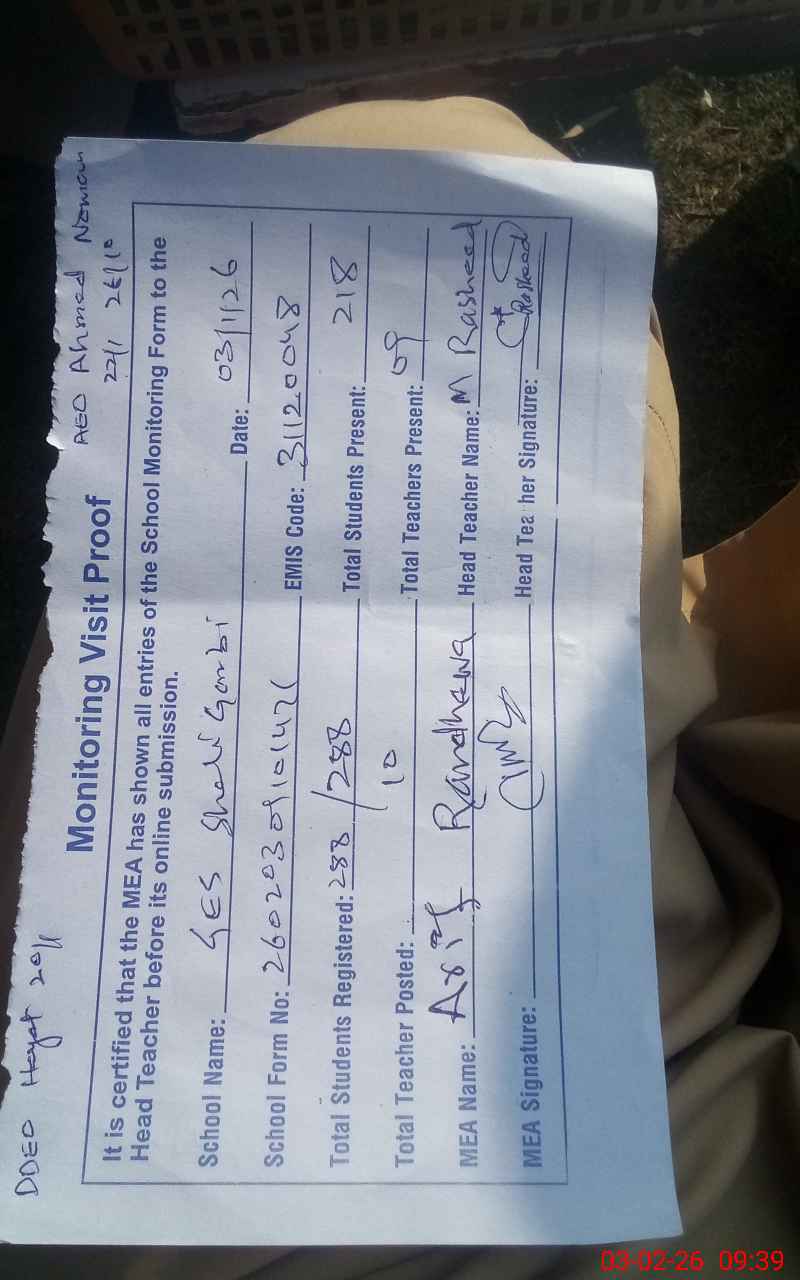 DDEO Hayat 20/1
AEO Ahmed Noman
22/1 26/10
Monitoring Visit Proof
It is certified that the MEA has shown all entries of the School Monitoring Form to the
Head Teacher before its online submission.
School Name: GES Shali Garbi Date: 03/1/26
School Form No: EMIS Code: 31120048
Total Students Registered: 288 / 288 Total Students Present: 218
Total Teacher Posted: 10 Total Teachers Present: 09
MEA Name: Asif Randhawa Head Teacher Name: M Rasheed
MEA Signature: Head Teacher Signature: Rasheed
03-02-26 09:39